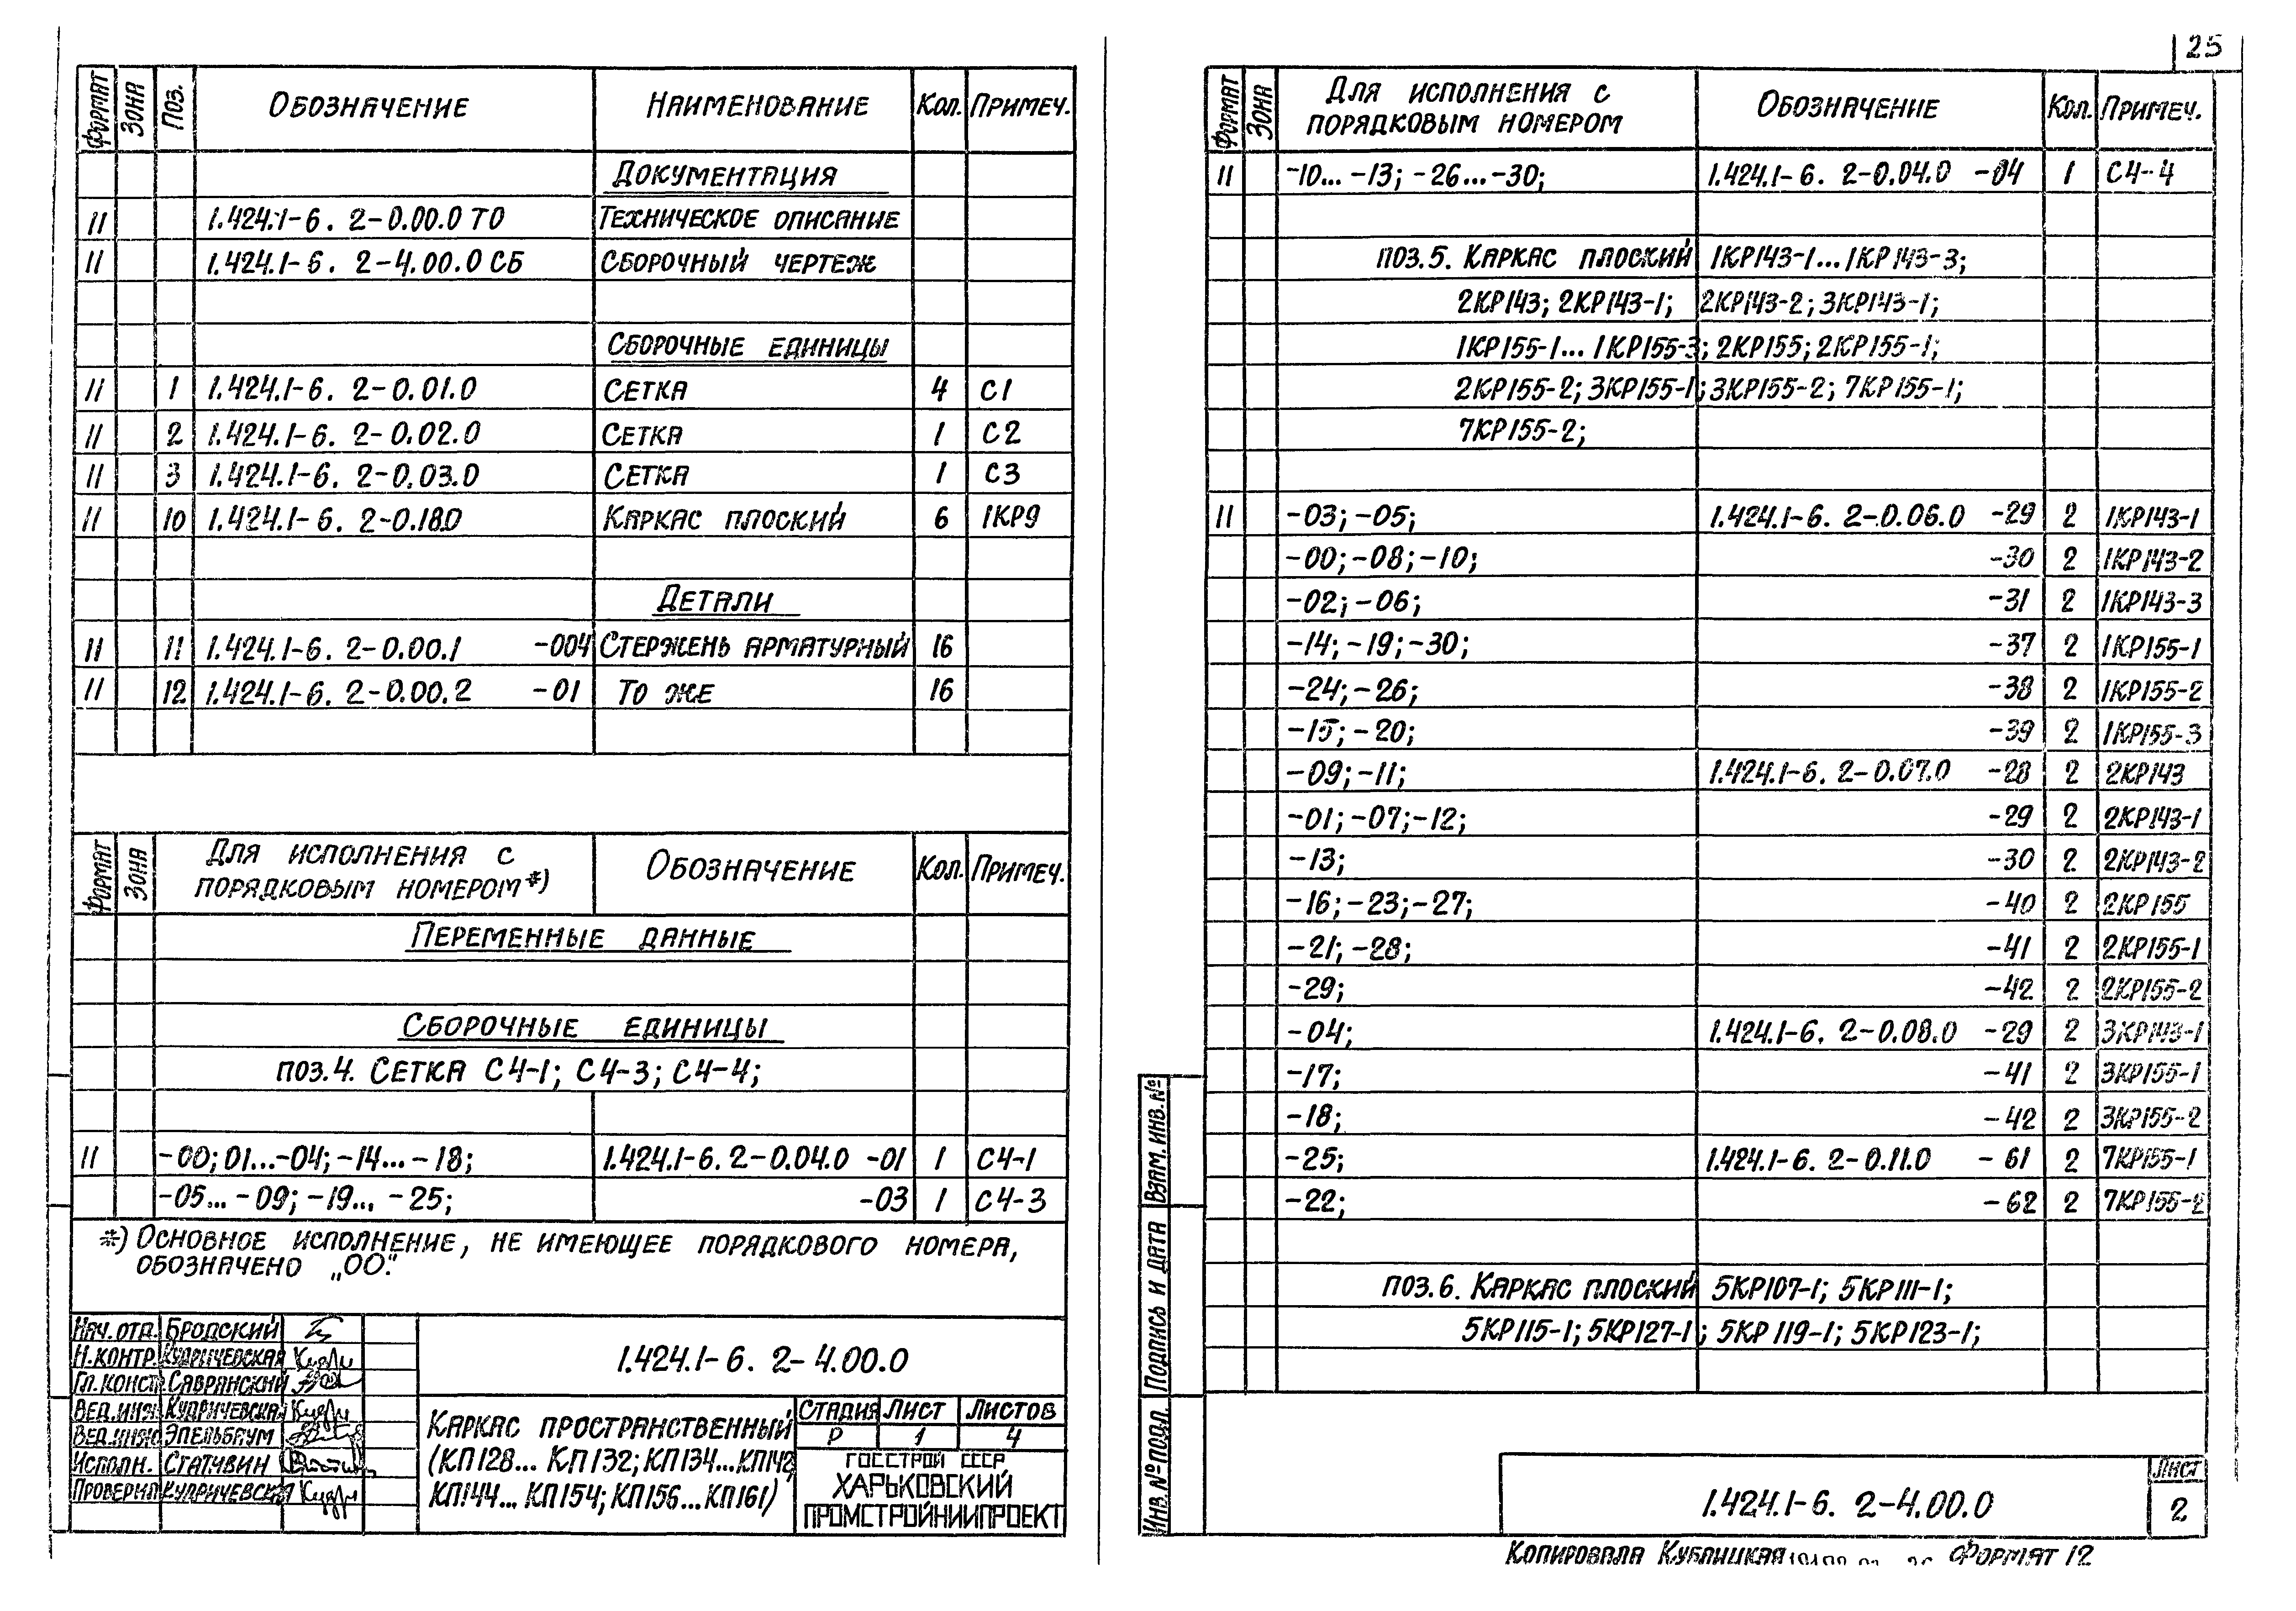 25
Формат Зона Поз. Обозначение Наименование Кол. Примеч.
Документация
11 1.424.1-6. 2-0.00.0 ТО Техническое описание
11 1.424.1-6. 2-4.00.0 СБ Сборочный чертеж
Сборочные единицы
11 1 1.424.1-6. 2-0.01.0 Сетка 4 С1
11 2 1.424.1-6. 2-0.02.0 Сетка 1 С2
11 3 1.424.1-6. 2-0.03.0 Сетка 1 С3
11 10 1.424.1-6. 2-0.18.0 Каркас плоский 6 1КР9
Детали
11 11 1.424.1-6. 2-0.00.1 -004 Стержень арматурный 16
11 12 1.424.1-6. 2-0.00.2 -01 То же 16
Формат Зона Для исполнения с порядковым номером*) Обозначение Кол. Примеч.
Переменные данные
Сборочные единицы
поз.4. Сетка С4-1; С4-3; С4-4;
11 -00; 01...-04; -14... -18; 1.424.1-6. 2-0.04.0 -01 1 С4-1
-05... -09; -19... -25; -03 1 С4-3
*) Основное исполнение, не имеющее порядкового номера,
обозначено „00."
Нач. отд. Бродский
Н.контр. Кудричевская
Гл.конст. Саврянский
Вед.инж. Кудричевская
Вед.инж. Эпельбаум
Исполн. Статывин
Проверил Кудричевская
1.424.1-6. 2-4.00.0
Каркас пространственный
(КП128... КП132; КП134...КП142
КП144... КП154; КП156...КП161)
Стадия Лист Листов
Р 1 4
Госстрой СССР
ХАРЬКОВСКИЙ
ПРОМСТРОЙНИИПРОЕКТ
Формат Зона Для исполнения с порядковым номером Обозначение Кол. Примеч.
11 -10... -13; -26...-30; 1.424.1-6. 2-0.04.0 -04 1 С4-4
поз.5. Каркас плоский 1КР143-1...1КР143-3;
2КР143; 2КР143-1; 2КР143-2; 3КР143-1;
1КР155-1... 1КР155-3; 2КР155; 2КР155-1;
2КР155-2; 3КР155-1; 3КР155-2; 7КР155-1;
7КР155-2;
11 -03; -05; 1.424.1-6. 2-0.06.0 -29 2 1КР143-1
-00; -08; -10; -30 2 1КР143-2
-02; -06; -31 2 1КР143-3
-14; -19; -30; -37 2 1КР155-1
-24; -26; -38 2 1КР155-2
-15; -20; -39 2 1КР155-3
-09; -11; 1.424.1-6. 2-0.07.0 -28 2 2КР143
-01; -07; -12; -29 2 2КР143-1
-13; -30 2 2КР143-2
-16; -23; -27; -40 2 2КР155
-21; -28; -41 2 2КР155-1
-29; -42 2 2КР155-2
-04; 1.424.1-6. 2-0.08.0 -29 2 3КР143-1
-17; -41 2 3КР155-1
-18; -42 2 3КР155-2
-25; 1.424.1-6. 2-0.11.0 -61 2 7КР155-1
-22; -62 2 7КР155-2
поз.6. Каркас плоский 5КР107-1; 5КР111-1;
5КР115-1; 5КР127-1; 5КР119-1; 5КР123-1;
Взам. инв. №
Подпись и дата
Инв. № подл.
1.424.1-6. 2-4.00.0
Лист
2
Копировала Кубницкая Формат 12